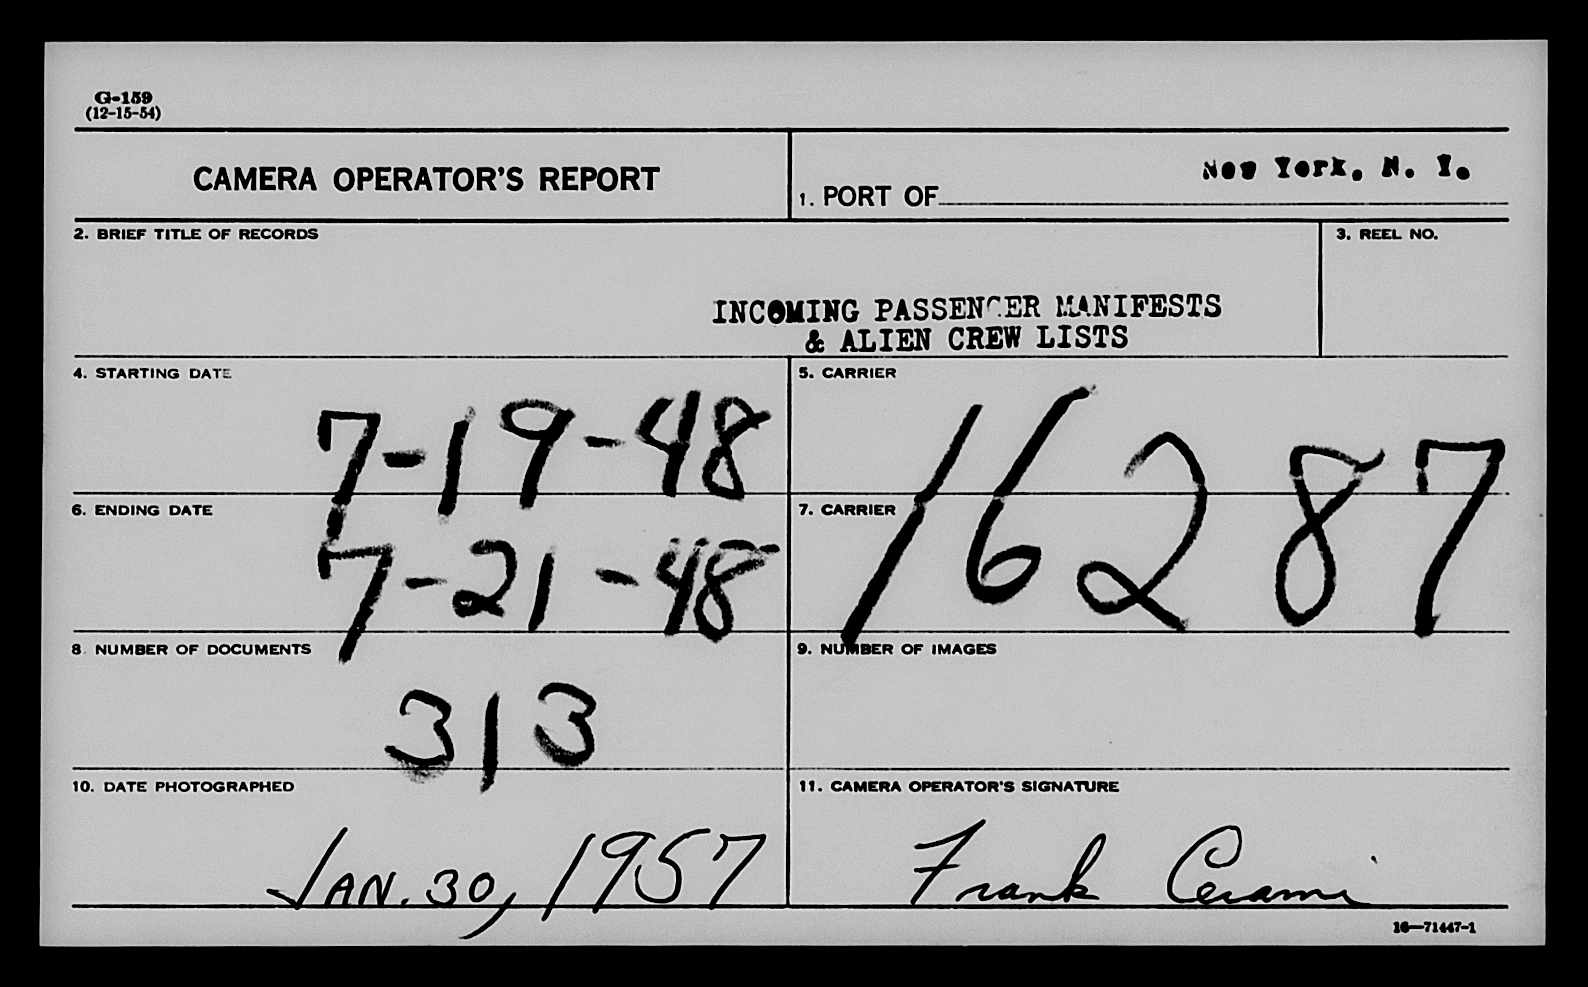 G-159
(12-15-54)
CAMERA OPERATOR'S REPORT
1. PORT OF New York, N. Y.
2. BRIEF TITLE OF RECORDS
3. REEL NO.
INCOMING PASSENGER MANIFESTS
& ALIEN CREW LISTS
4. STARTING DATE
7-19-48
5. CARRIER
16287
6. ENDING DATE
7-21-48
7. CARRIER
8. NUMBER OF DOCUMENTS
313
9. NUMBER OF IMAGES
10. DATE PHOTOGRAPHED
JAN. 30, 1957
11. CAMERA OPERATOR'S SIGNATURE
Frank Cerami
16—71447-1